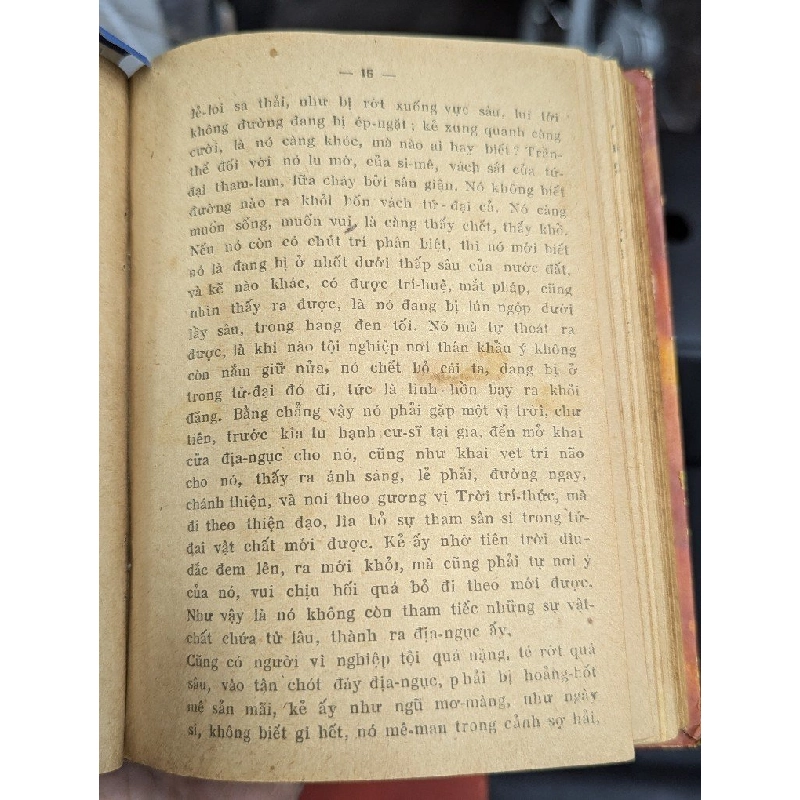 — 16 —
lẻ-loi sa thải, như bị rớt xuống vực sâu, lui tới
không đường đang bị ép-ngặt ; kẻ xung quanh càng
cười, là nó càng khóc, mà nào ai hay biết ? Trên-
thế đối với nó lu mờ, của si-mê, vách sắt của tứ-
đại tham-lam, lửa cháy bởi sân giận. Nó không biết
đường nào ra khỏi bốn vách tứ-đại cả. Nó càng
muốn sống, muốn vui, là càng thấy chết, thấy khổ.
Nếu nó còn có chút trí phân biệt, thì nó mới biết
nó là đang bị ở nhốt dưới thấp sâu của nước đất.
và kẽ nào khác, có được trí-huệ, mắt pháp, cũng
nhìn thấy ra được, là nó đang bị lún ngộp dưới
lầy sàn, trong hang đen tối. Nó mà tự thoát ra
được, là khi nào tội nghiệp nơi thân khẩu ý không
còn nắm giữ nửa, nó chết bỏ cái ta, đang bị ở
trong tứ-đại đó đi, tức là linh hồn bay ra khỏi
đặng. Bằng chẳng vậy nó phải gặp một vị trời, chư
tiên, trước kia tu hạnh cư-sĩ tại gia, đến mở khai
cửa địa-ngục cho nó, cũng như khai vẹt trí não
cho nó, thấy ra ánh sáng, lẽ phải, đường ngay,
chánh thiện, và noi theo gương vị Trời trí-thức, mà
đi theo thiện đạo, lìa bỏ sự tham sân si trong tứ-
đại vật chất mới được. Kẻ ấy nhờ tiên trời dìu-
dắc đem lên, ra mới khỏi, mà cũng phải tự nơi ý
của nó, vui chịu hối quá bỏ đi theo mới được.
Như vậy là nó không còn tham tiếc những sự vật-
chất chứa từ lâu, thành ra địa-ngục ấy.
Cũng có người vì nghiệp tội quá nặng, té rớt quá
sâu, vào tận chót đáy địa-ngục, phải bị hoảng-hốt
mê sản mãi, kẻ ấy như ngũ mơ-màng, như ngây
si, không biết gì hết, nó mê-man trong cảnh sợ hải,